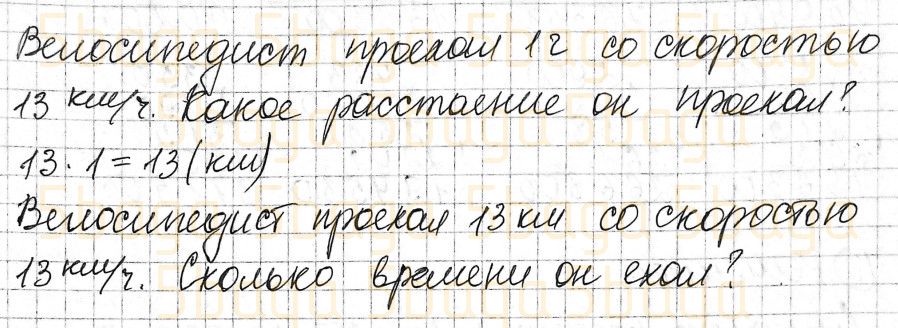 Велосипедист проехал 1 ч со скоростью
13 км/ч. Какое расстояние он проехал?
13 · 1 = 13 (км)
Велосипедист проехал 13 км со скоростью
13 км/ч. Сколько времени он ехал?